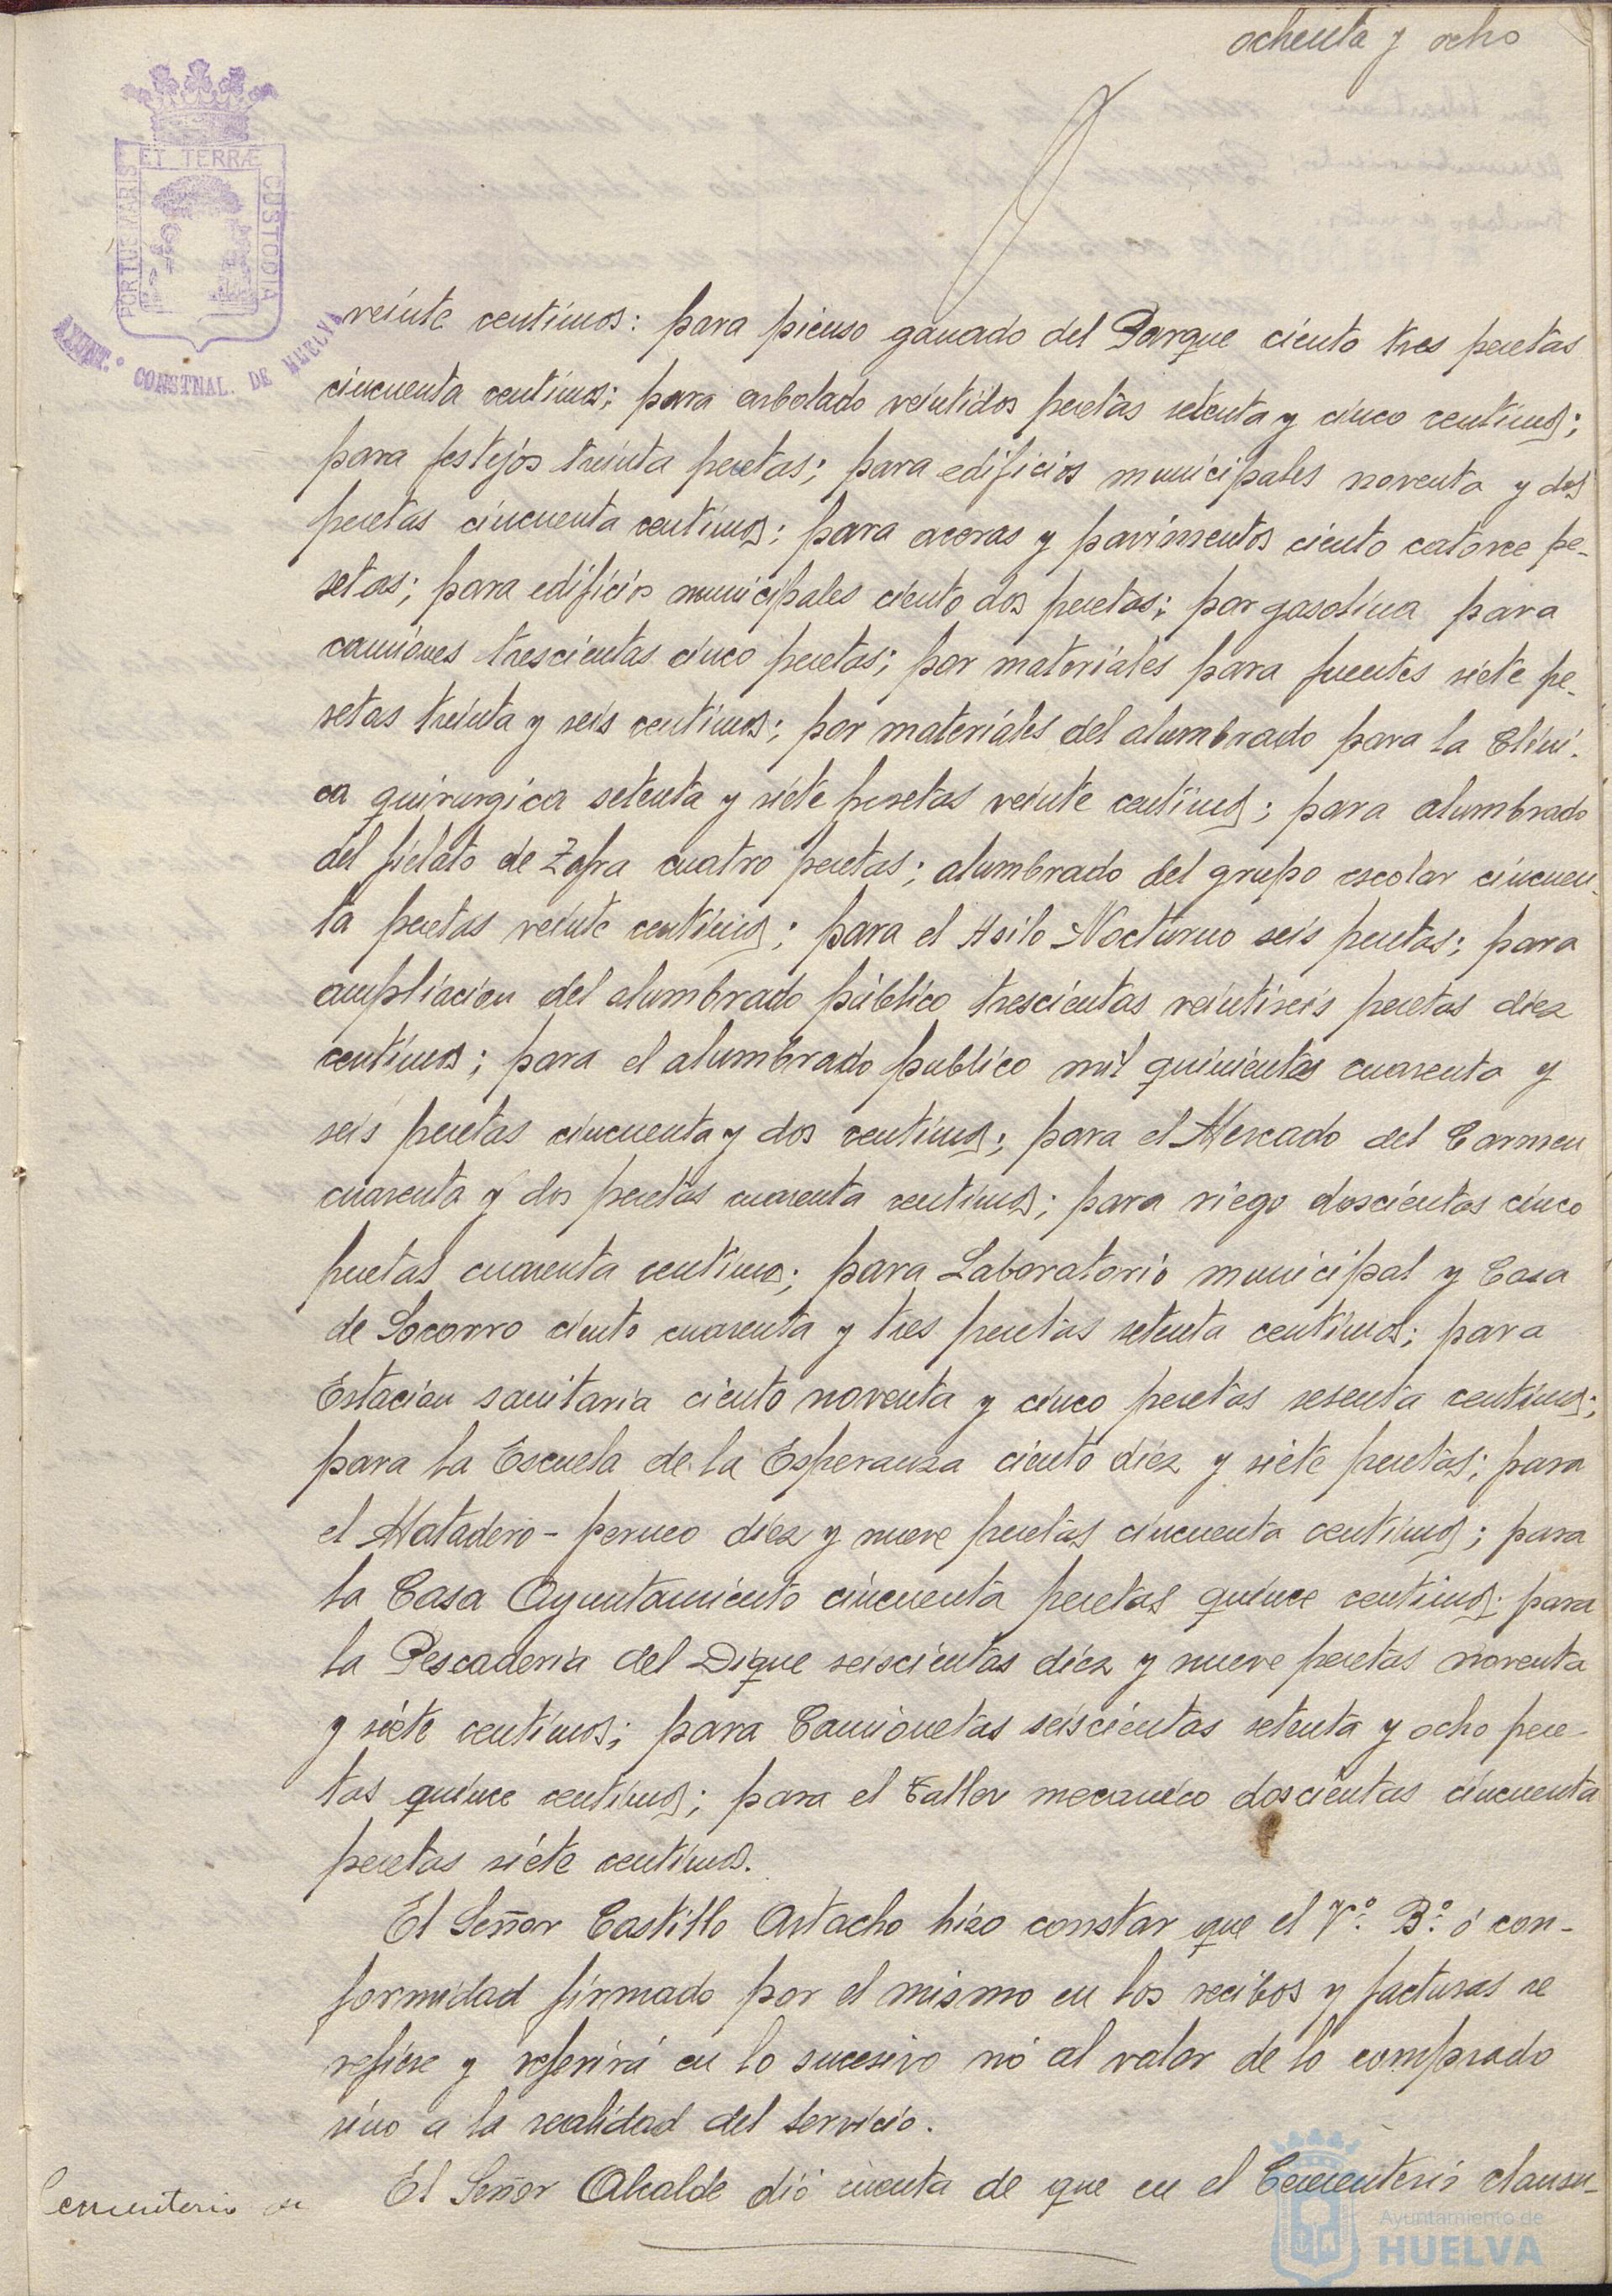 ochenta y ocho
PORTUS MARIS ET TERRÆ CUSTODIA
AYUNT.º CONSTNAL. DE HUELVA
veinte centimos: para pienso ganado del Parque ciento tres pesetas
cincuenta centimos; para arbolado veintidos pesetas setenta y cinco centimos;
para festejos treinta pesetas; para edificios municipales noventa y dos
pesetas cincuenta centimos; para aceras y pavimentos ciento catorce pe-
setas; para edificios municipales ciento dos pesetas; por gasolina para
camiones trescientas cinco pesetas; por materiales para fuentes siete pe-
setas treinta y seis centimos; por materiales del alumbrado para la Clini-
ca quirurgica setenta y siete pesetas veinte centimos; para alumbrado
del fielato de Zafra cuatro pesetas; alumbrado del grupo escolar cincuen-
ta pesetas veinte centimos; para el Asilo Nocturno seis pesetas; para
ampliacion del alumbrado público trescientas veintiseis pesetas diez
centimos; para el alumbrado publico mil quinientas cuarenta y
seis pesetas cincuenta y dos centimos; para el Mercado del Carmen
cuarenta y dos pesetas cuarenta centimos; para riego doscientas cinco
pesetas cuarenta centimos; para Laboratorio municipal y Casa
de Socorro ciento cuarenta y tres pesetas setenta centimos; para
Estacion sanitaria ciento noventa y cinco pesetas sesenta centimos;
para la Escuela de la Esperanza ciento diez y siete pesetas; para
el Matadero - perneo diez y nueve pesetas cincuenta centimos; para
la Casa Ayuntamiento cincuenta pesetas quince centimos; para
la Pescaderia del Dique seiscientas diez y nueve pesetas noventa
y siete centimos; para Camionetas seiscientas setenta y ocho pese-
tas quince centimos; para el Taller mecanico doscientas cincuenta
pesetas siete centimos.
El Señor Castillo Artacho hizo constar que el Vº. Bº. ó con-
formidad firmado por el mismo en los recibos y facturas se
refiere y referirá en lo sucesivo nó al valor de lo comprado
sino a la realidad del servicio.
Cementerio de
El Señor Alcalde dió cuenta de que en el Cementerio clausu-
Ayuntamiento de
HUELVA